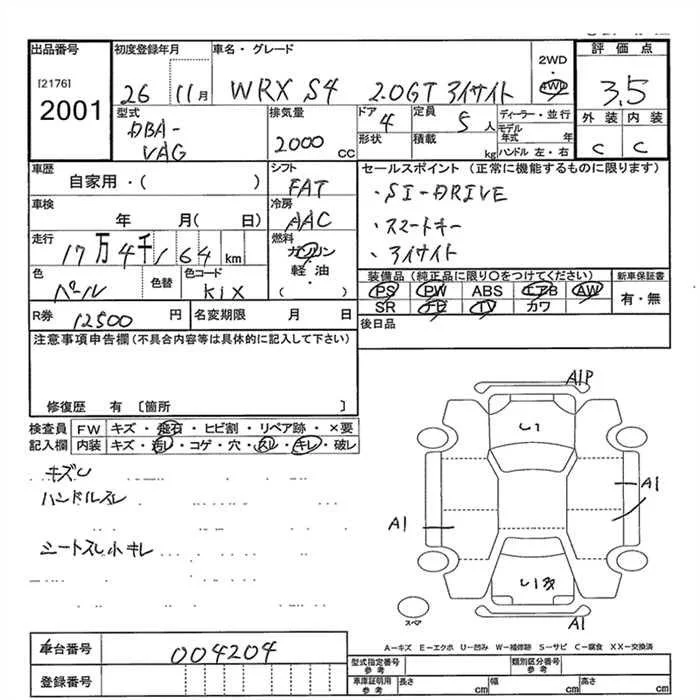 出品番号
[2176]
2001
初度登録年月
26 11月
車名・グレード
WRX S4 2.0GT アイサイト
2WD
・
4WD
評価点
3.5
外装 内装
C C
型式
DBA-
VAG
排気量
2000 CC
ドア
4
形状
定員
5人
積載
kg
ディーラー・並行
モデル年式 年
ハンドル 左・右
車歴
自家用・( )
シフト
FAT
セールスポイント (正常に機能するものに限ります)
・SI-DRIVE
・スマートキー
・アイサイト
車検
年 月( 日)
冷房
AAC
走行
17万4千164km
燃料
ガソリン
・
軽油
( )
色
パール
色替
色コード
K1X
装備品 (純正品に限り○をつけてください)
PS PW ABS エアB AW
SR ナビ TV カワ
新車保証書
有・無
R券 12500 円
名変期限 月 日
後日品
注意事項申告欄 (不具合内容等は具体的に記入して下さい)
修復歴 有 [箇所 ]
検査員
記入欄
FW キズ・飛石・ヒビ割・リペア跡・×要
内装 キズ・汚レ・コゲ・穴・スレ・キレ・破レ
キズU
ハンドルスレ
シートスレ小キレ
A1P
U1
A1
A1
A1
スペア
A－キズ E－エクボ U－凹み W－補修跡 S－サビ C－腐食 XX－交換済
車台番号
004204
登録番号
型式指定番号
参考
類別区分番号
参考
車庫証明用
参考
長さ cm
幅 cm
高さ cm